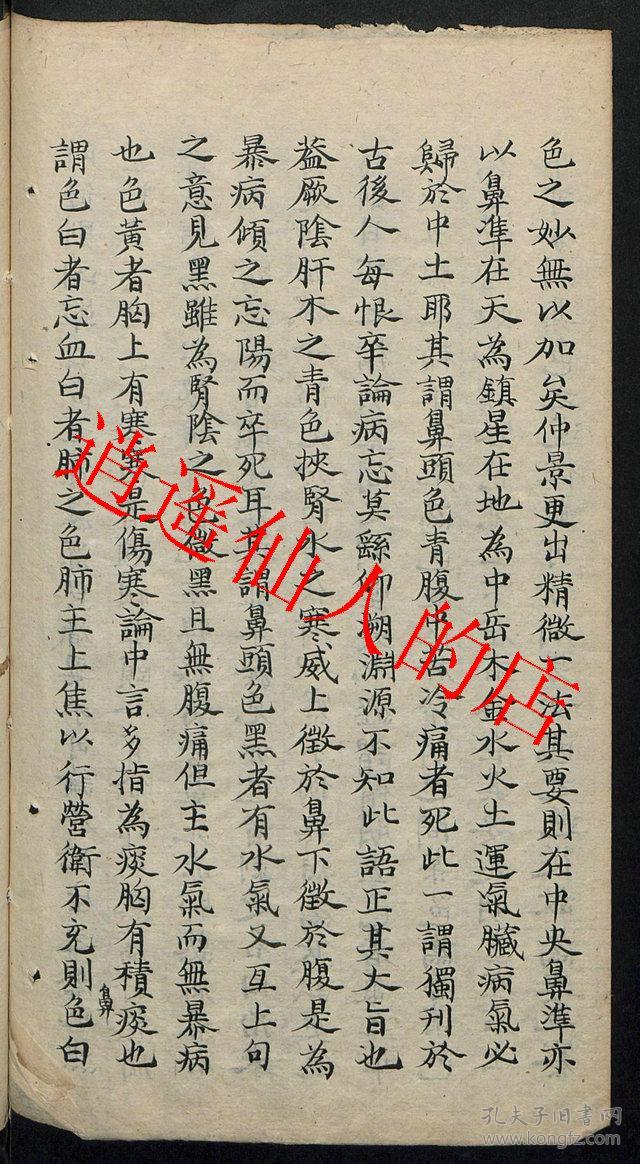 色之妙無以加矣仲景更出精微一法其要則在中央鼻準亦
以鼻準在天為鎮星在地為中岳木金水火土運氣臟病氣必
歸於中土耶其謂鼻頭色青腹中苦冷痛者死此一謂獨刊於
古後人每恨卒論病忘莫繇仰溯淵源不知此語正其大旨也
葢厥陰肝木之青色挾腎水之寒威上徵於鼻下徵於腹是為
暴病傾之忘陽而卒死耳其謂鼻頭色黑者有水氣又互上句
之意見黑雖為腎陰之色微黑且無腹痛但主水氣而無暴病
也色黃者胸上有寒寒是傷寒論中言多指為痰胸有積痰也
謂色白者忘血白者肺之色肺主上焦以行營衛不充則鼻色白
逍遥仙人的店
孔夫子旧书网
www.kongfz.com